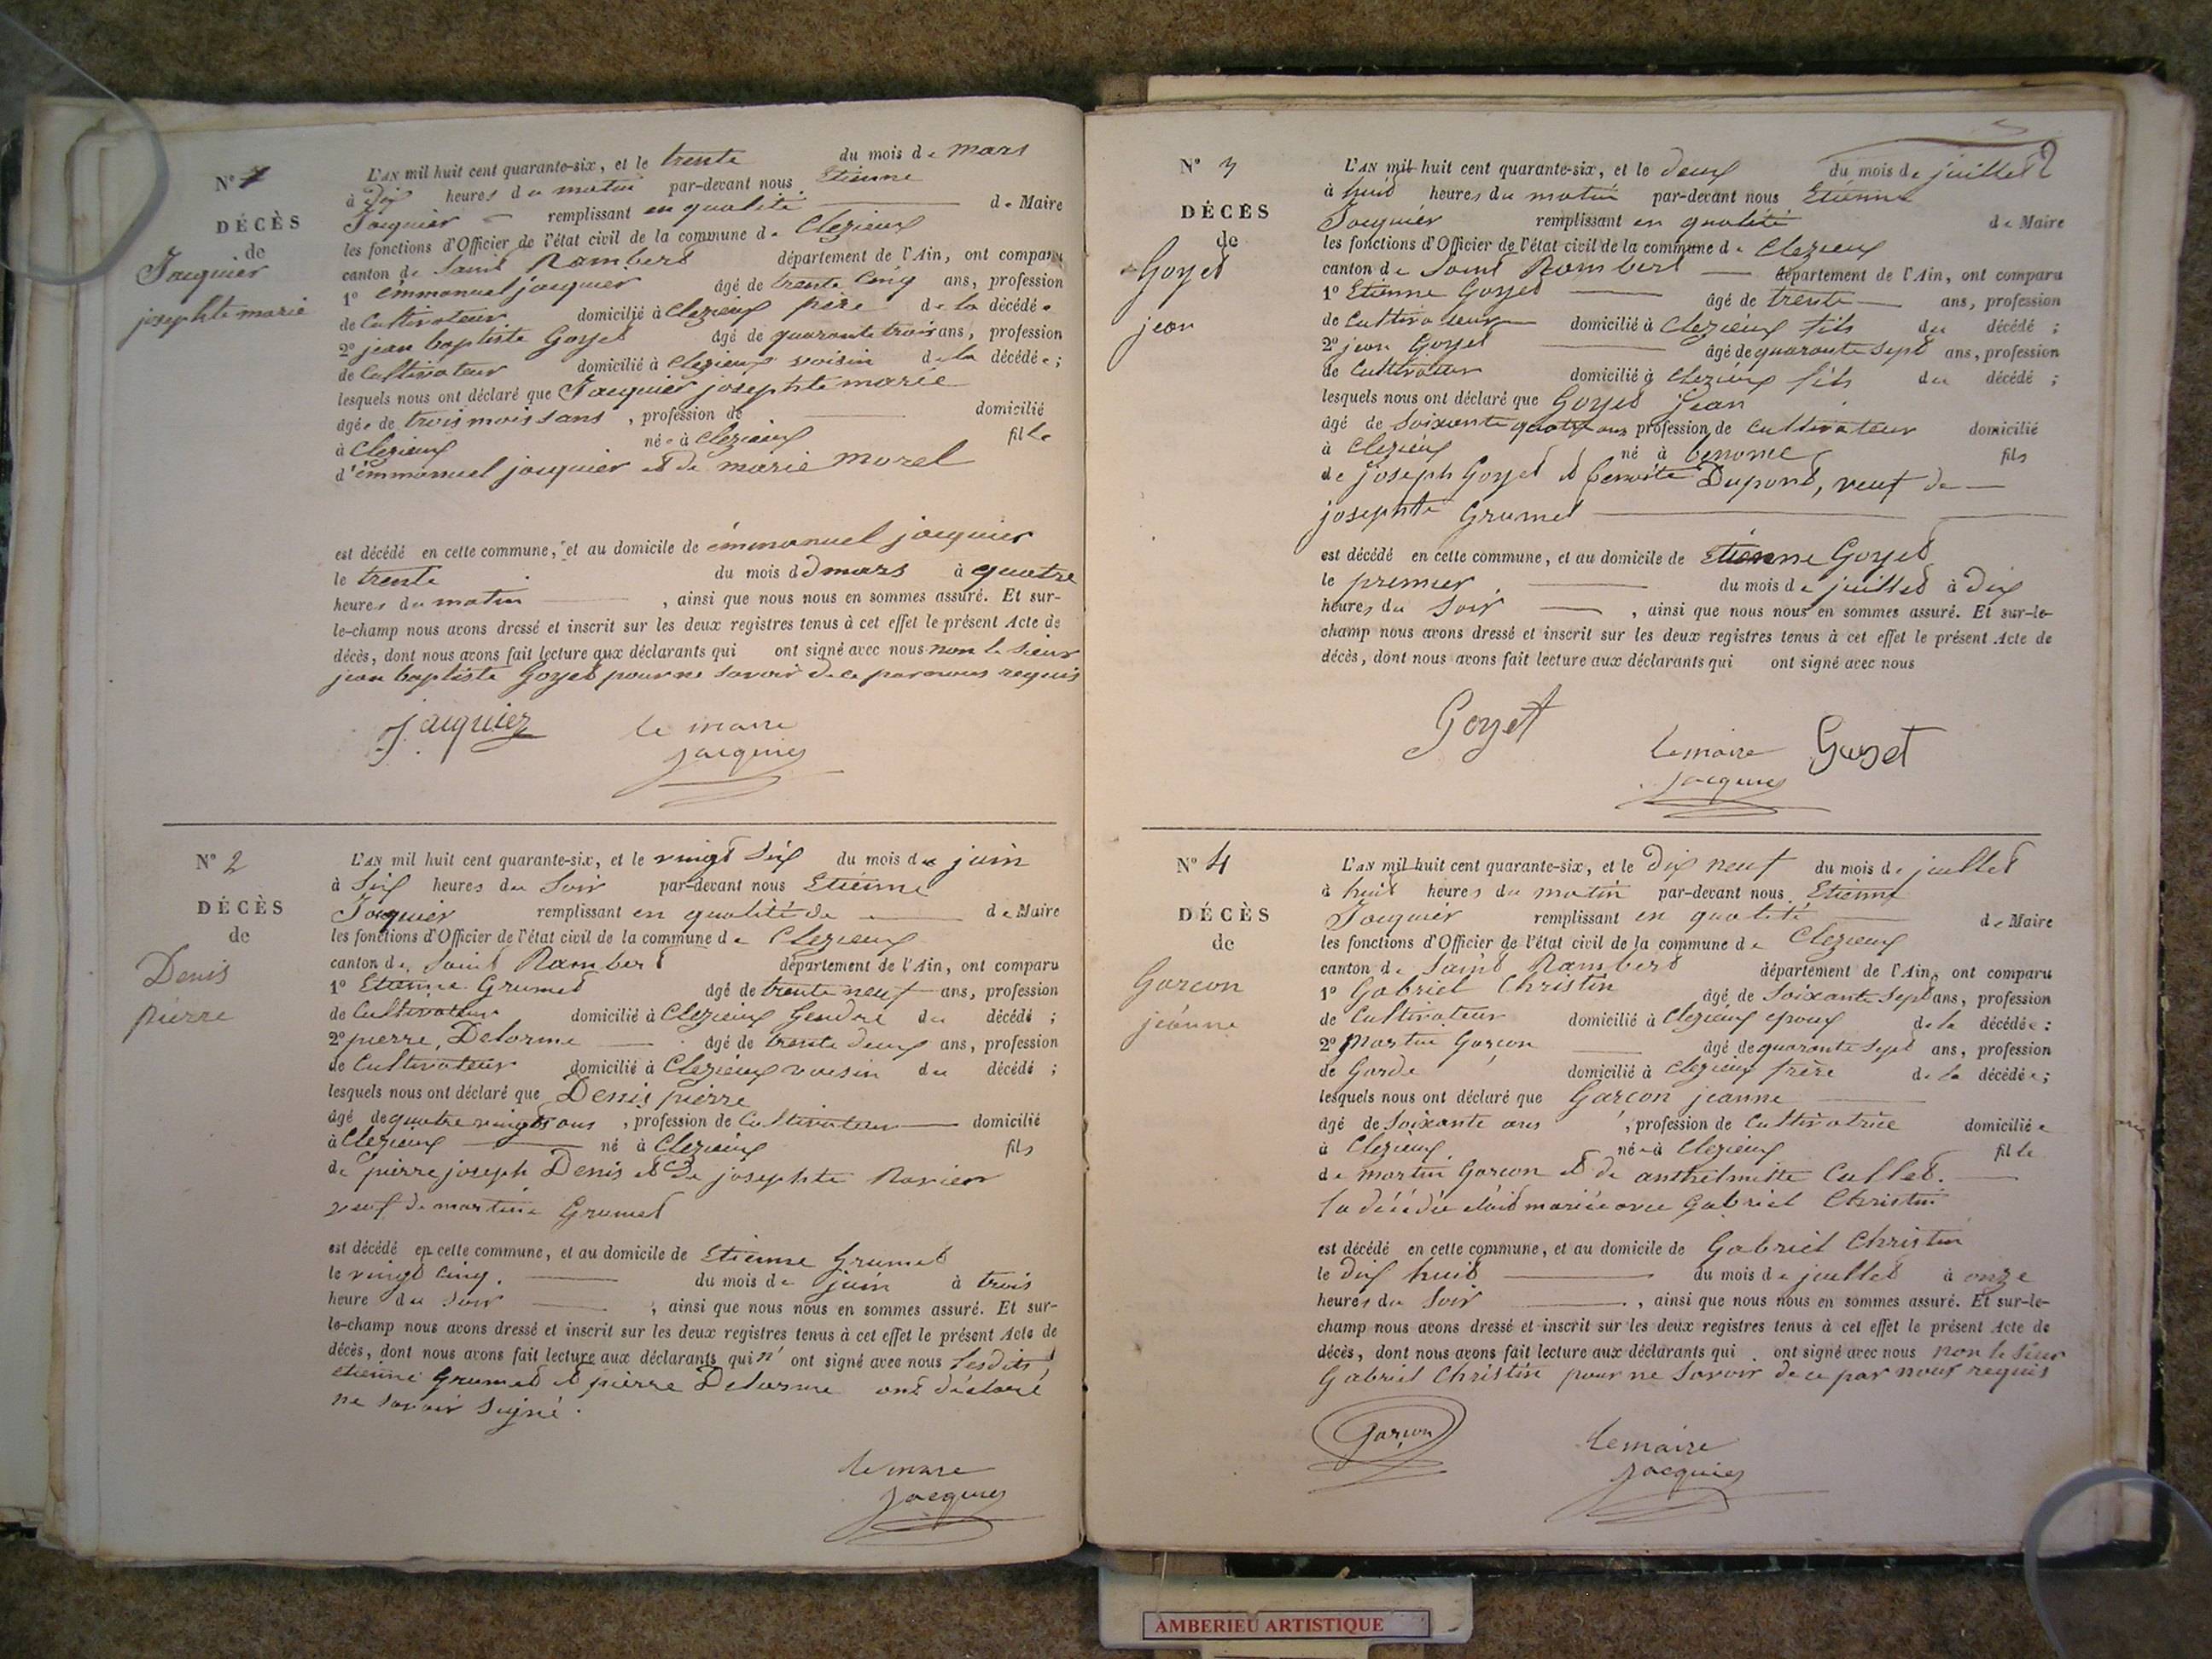 N° 1
DÉCÈS
de
Jacquier
josephte marie
L'AN mil huit cent quarante-six, et le trente du mois de mars
à dix heures du matin par-devant nous Etienne
Jacquier remplissant en qualité de Maire
les fonctions d'Officier de l'état civil de la commune de Clezieux
canton de Saint Rambert département de l'Ain, ont comparu
1° émmanuel jacquier âgé de trente cinq ans, profession
de Cultivateur domicilié à Clezieux père de la décédée
2° jean baptiste Goyet âgé de quarante trois ans, profession
de Cultivateur domicilié à Clezieux voisin de la décédée;
lesquels nous ont déclaré que Jacquier josephte marie
âgée de trois mois sans , profession de domicilié
à Clezieux née à Clezieux fille
d'émmanuel jacquier et de marie morel
est décédé en cette commune, et au domicile de émmanuel jacquier
le trente du mois de mars à quatre
heures du matin , ainsi que nous nous en sommes assuré. Et sur-
le-champ nous avons dressé et inscrit sur les deux registres tenus à cet effet le présent Acte de
décès, dont nous avons fait lecture aux déclarants qui ont signé avec nous non le sieur
jean baptiste Goyet pour ne savoir de ce par nous requis
Jacquier le maire
Jacquier
N° 2
DÉCÈS
de
Denis
pierre
L'AN mil huit cent quarante-six, et le vingt six du mois de juin
à six heures du soir par-devant nous Etienne
Jacquier remplissant en qualité de de Maire
les fonctions d'Officier de l'état civil de la commune de Clezieux
canton de Saint Rambert département de l'Ain, ont comparu
1° Etienne Grumet âgé de trente neuf ans, profession
de Cultivateur domicilié à Clezieux Gendre du décédé ;
2° pierre Delorme âgé de trente deux ans, profession
de Cultivateur domicilié à Clezieux voisin du décédé ;
lesquels nous ont déclaré que Denis pierre
âgé de quatre vingts ans , profession de Cultivateur domicilié
à Clezieux né à Clezieux fils
de pierre joseph Denis et de josephte Ravier
veuf de martine Grumet
est décédé en cette commune, et au domicile de Etienne Grumet
le vingt cinq du mois de juin à trois
heure du soir , ainsi que nous nous en sommes assuré. Et sur-
le-champ nous avons dressé et inscrit sur les deux registres tenus à cet effet le présent Acte de
décès, dont nous avons fait lecture aux déclarants qui n'ont signé avec nous lesdits
etienne Grumet et pierre Delorme ont déclaré
ne savoir signé.
le maire
Jacquier
2
N° 3
DÉCÈS
de
Goyet
jean
L'AN mil huit cent quarante-six, et le deux du mois de juillet
à huit heures du matin par-devant nous Etienne
Jacquier remplissant en qualité de Maire
les fonctions d'Officier de l'état civil de la commune de Clezieux
canton de Saint Rambert département de l'Ain, ont comparu
1° Etienne Goyet âgé de trente ans, profession
de Cultivateur domicilié à Clezieux fils du décédé ;
2° jean Goyet âgé de quarante sept ans, profession
de Cultivateur domicilié à Clezieux fils du décédé ;
lesquels nous ont déclaré que Goyet Jean
âgé de soixante ans profession de Cultivateur domicilié
à Clezieux né à benonce fils
de joseph Goyet et benoite Dupont, veuf de
josephte Grumet
est décédé en cette commune, et au domicile de Etienne Goyet
le premier du mois de juillet à dix
heures du soir , ainsi que nous nous en sommes assuré. Et sur-le-
champ nous avons dressé et inscrit sur les deux registres tenus à cet effet le présent Acte de
décès, dont nous avons fait lecture aux déclarants qui ont signé avec nous
Goyet
le maire Goyet
Jacquier
N° 4
DÉCÈS
de
Garcon
jeanne
L'AN mil huit cent quarante-six, et le dix neuf du mois de juillet
à huit heures du matin par-devant nous Etienne
Jacquier remplissant en qualité de Maire
les fonctions d'Officier de l'état civil de la commune de Clezieux
canton de Saint Rambert département de l'Ain, ont comparu
1° Gabriel Christin âgé de soixante sept ans, profession
de Cultivateur domicilié à Clezieux epoux de la décédée :
2° Martin Garçon âgé de quarante sept ans, profession
de Garde domicilié à Clezieux frère de la décédée;
lesquels nous ont déclaré que Garçon jeanne
âgé de soixante ans , profession de Cultivatrice domiciliée
à Clezieux née à Clezieux fille
de martin Garcon et de anthelmette Cullet.
la décédée etoit mariée avec Gabriel Christin
est décédé en cette commune, et au domicile de Gabriel Christin
le dix huit du mois de juillet à onze
heures du soir , ainsi que nous nous en sommes assuré. Et sur-le-
champ nous avons dressé et inscrit sur les deux registres tenus à cet effet le présent Acte de
décès, dont nous avons fait lecture aux déclarants qui ont signé avec nous non le sieur
Gabriel Christin pour ne savoir de ce par nous requis
Garçon le maire
Jacquier
AMBERIEU ARTISTIQUE